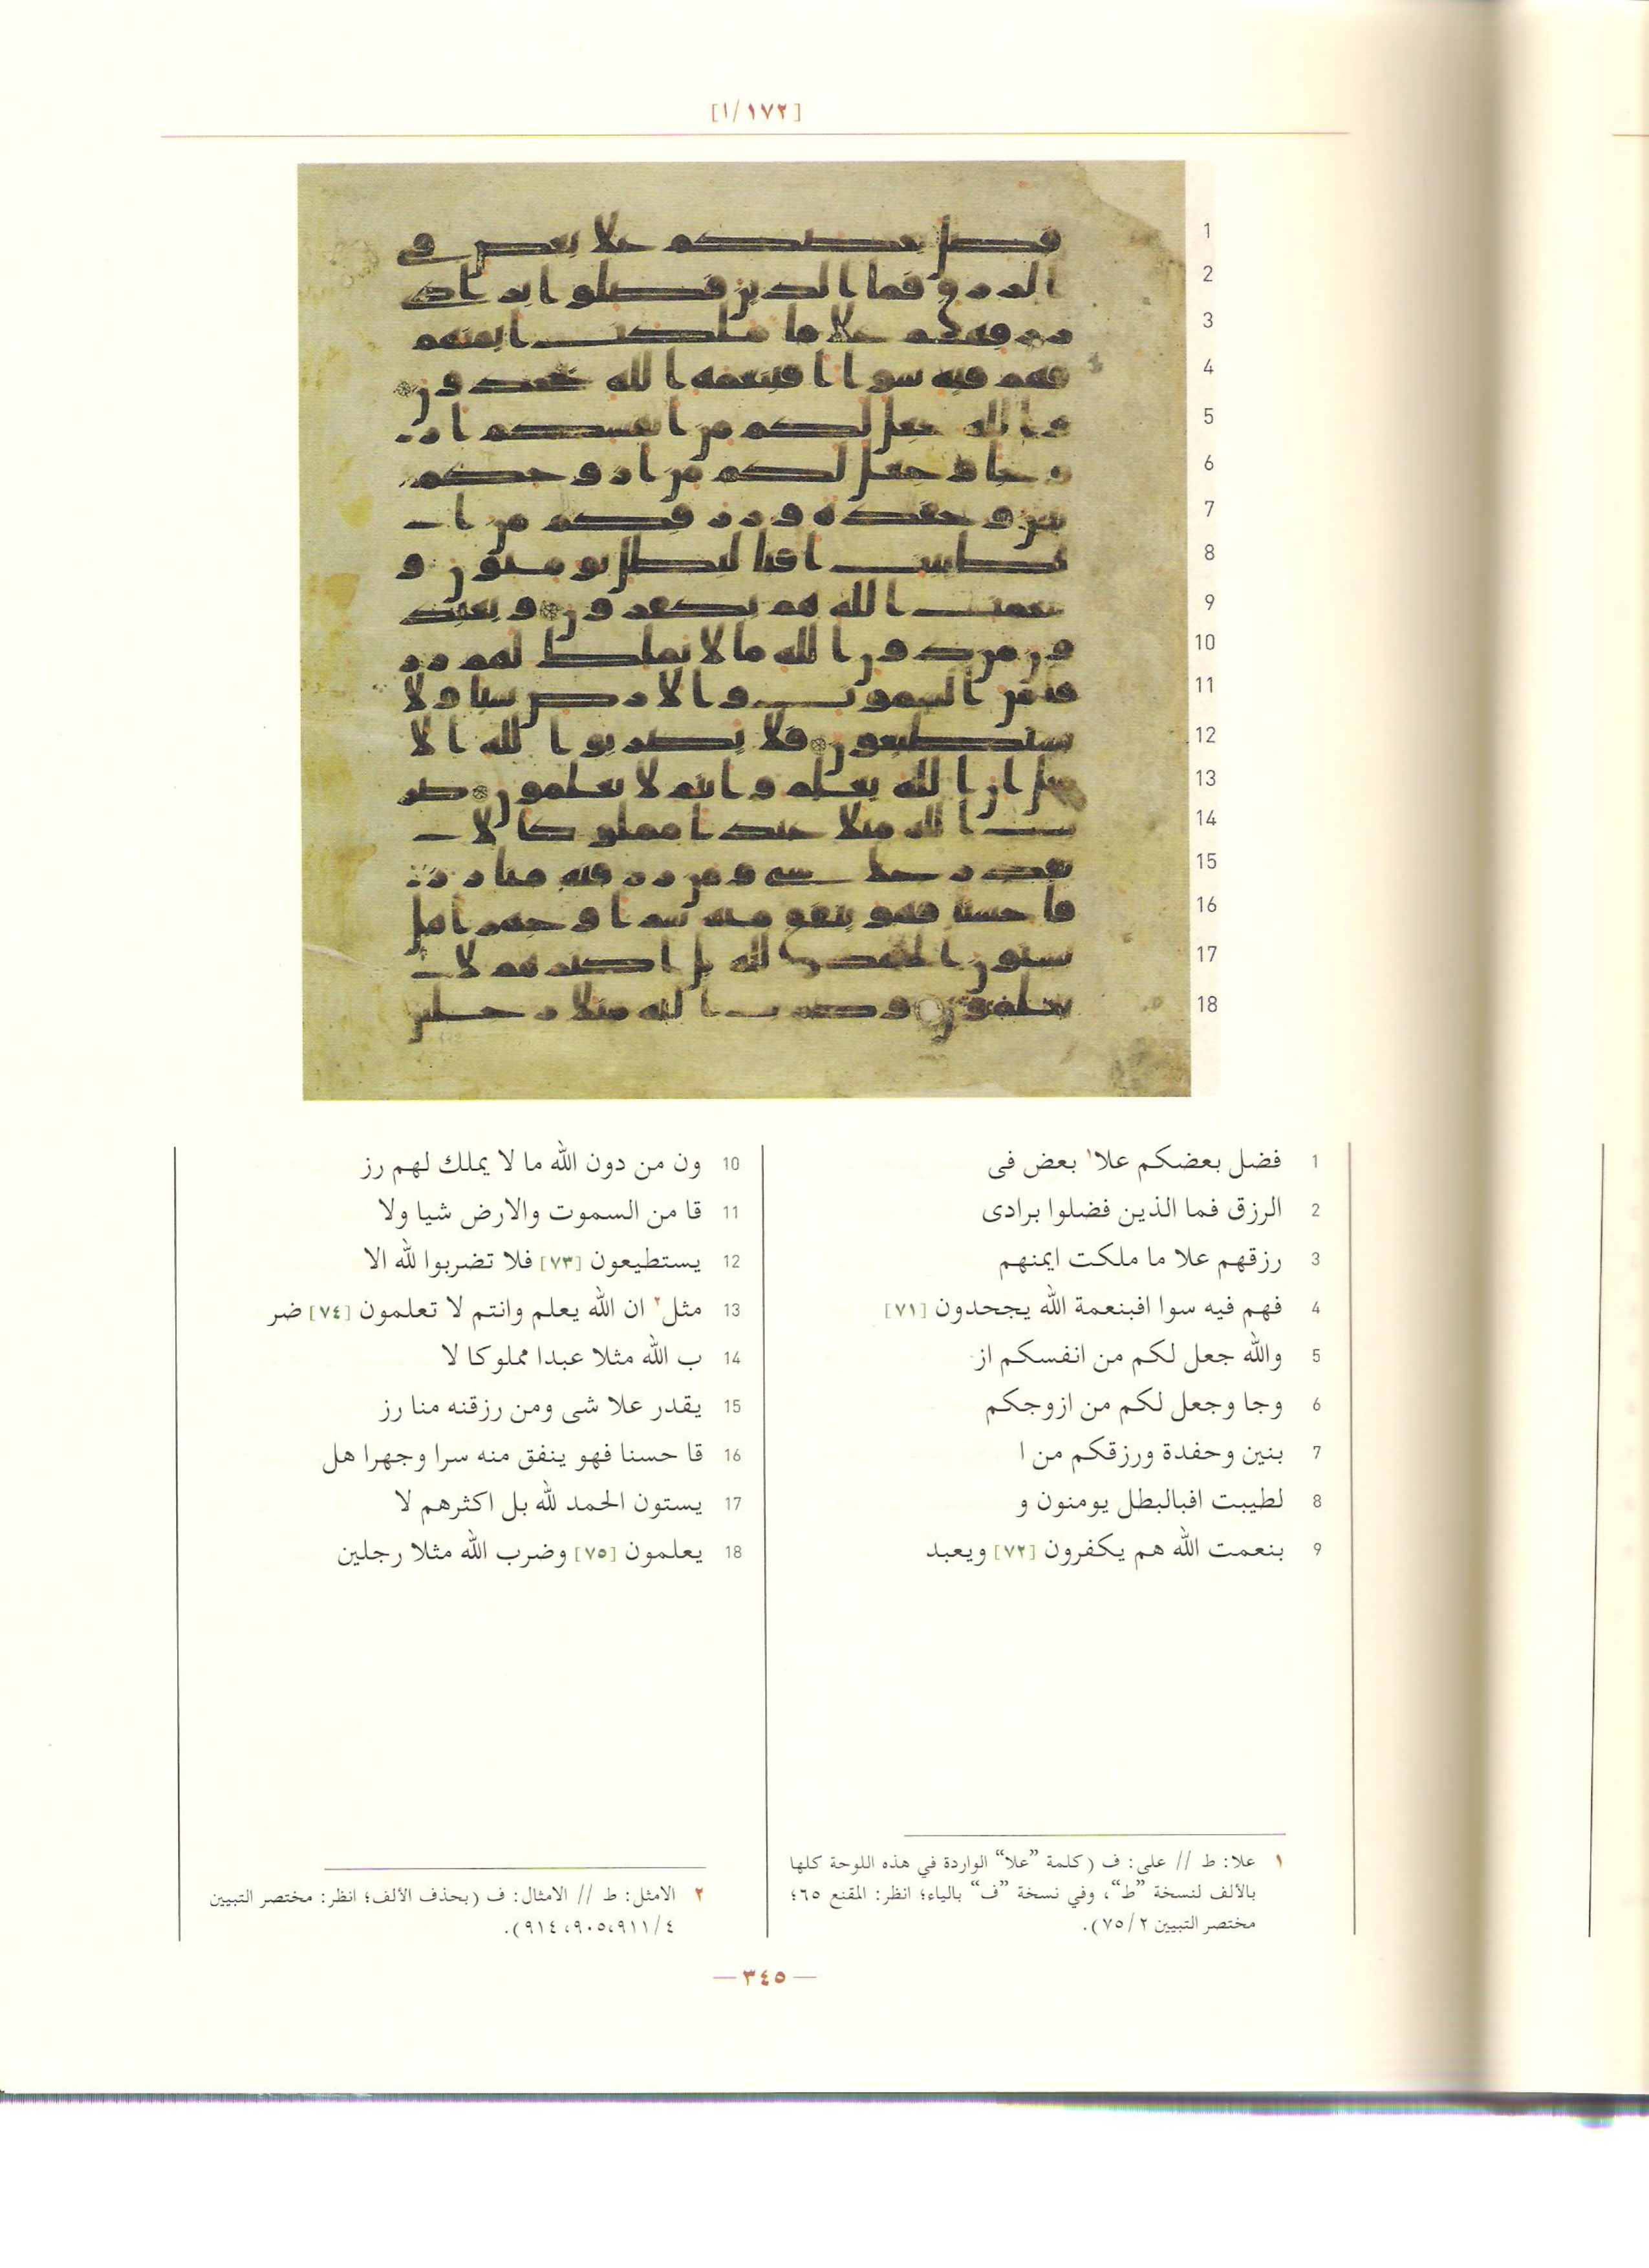 [١/١٧٢]
1 فضل بعضكم علا١ بعض فى
2 الرزق فما الذين فضلوا برادى
3 رزقهم علا ما ملكت ايمنهم
4 فهم فيه سوا افبنعمة الله يجحدون [٧١]
5 والله جعل لكم من انفسكم از
6 وجا وجعل لكم من ازوجكم
7 بنين وحفدة ورزقكم من ا
8 لطيبت افبالبطل يومنون و
9 بنعمت الله هم يكفرون [٧٢] ويعبد
10 ون من دون الله ما لا يملك لهم رز
11 قا من السموت والارض شيا ولا
12 يستطيعون [٧٣] فلا تضربوا لله الا
13 مثل٢ ان الله يعلم وانتم لا تعلمون [٧٤] ضر
14 ب الله مثلا عبدا مملوكا لا
15 يقدر علا شى ومن رزقنه منا رز
16 قا حسنا فهو ينفق منه سرا وجهرا هل
17 يستون الحمد لله بل اكثرهم لا
18 يعلمون [٧٥] وضرب الله مثلا رجلين
١ علا: ط // على: ف (كلمة ”علا“ الواردة في هذه اللوحة كلها
بالألف لنسخة ”ط“، وفي نسخة ”ف“ بالياء؛ انظر: المقنع ٦٥؛
مختصر التبيين ٧٥/٢).
٢ الامثل: ط // الامثال: ف (بحذف الألف؛ انظر: مختصر التبيين
٤/ ٩١١،٩٠٥، ٩١٤).
— ٣٤٥ —